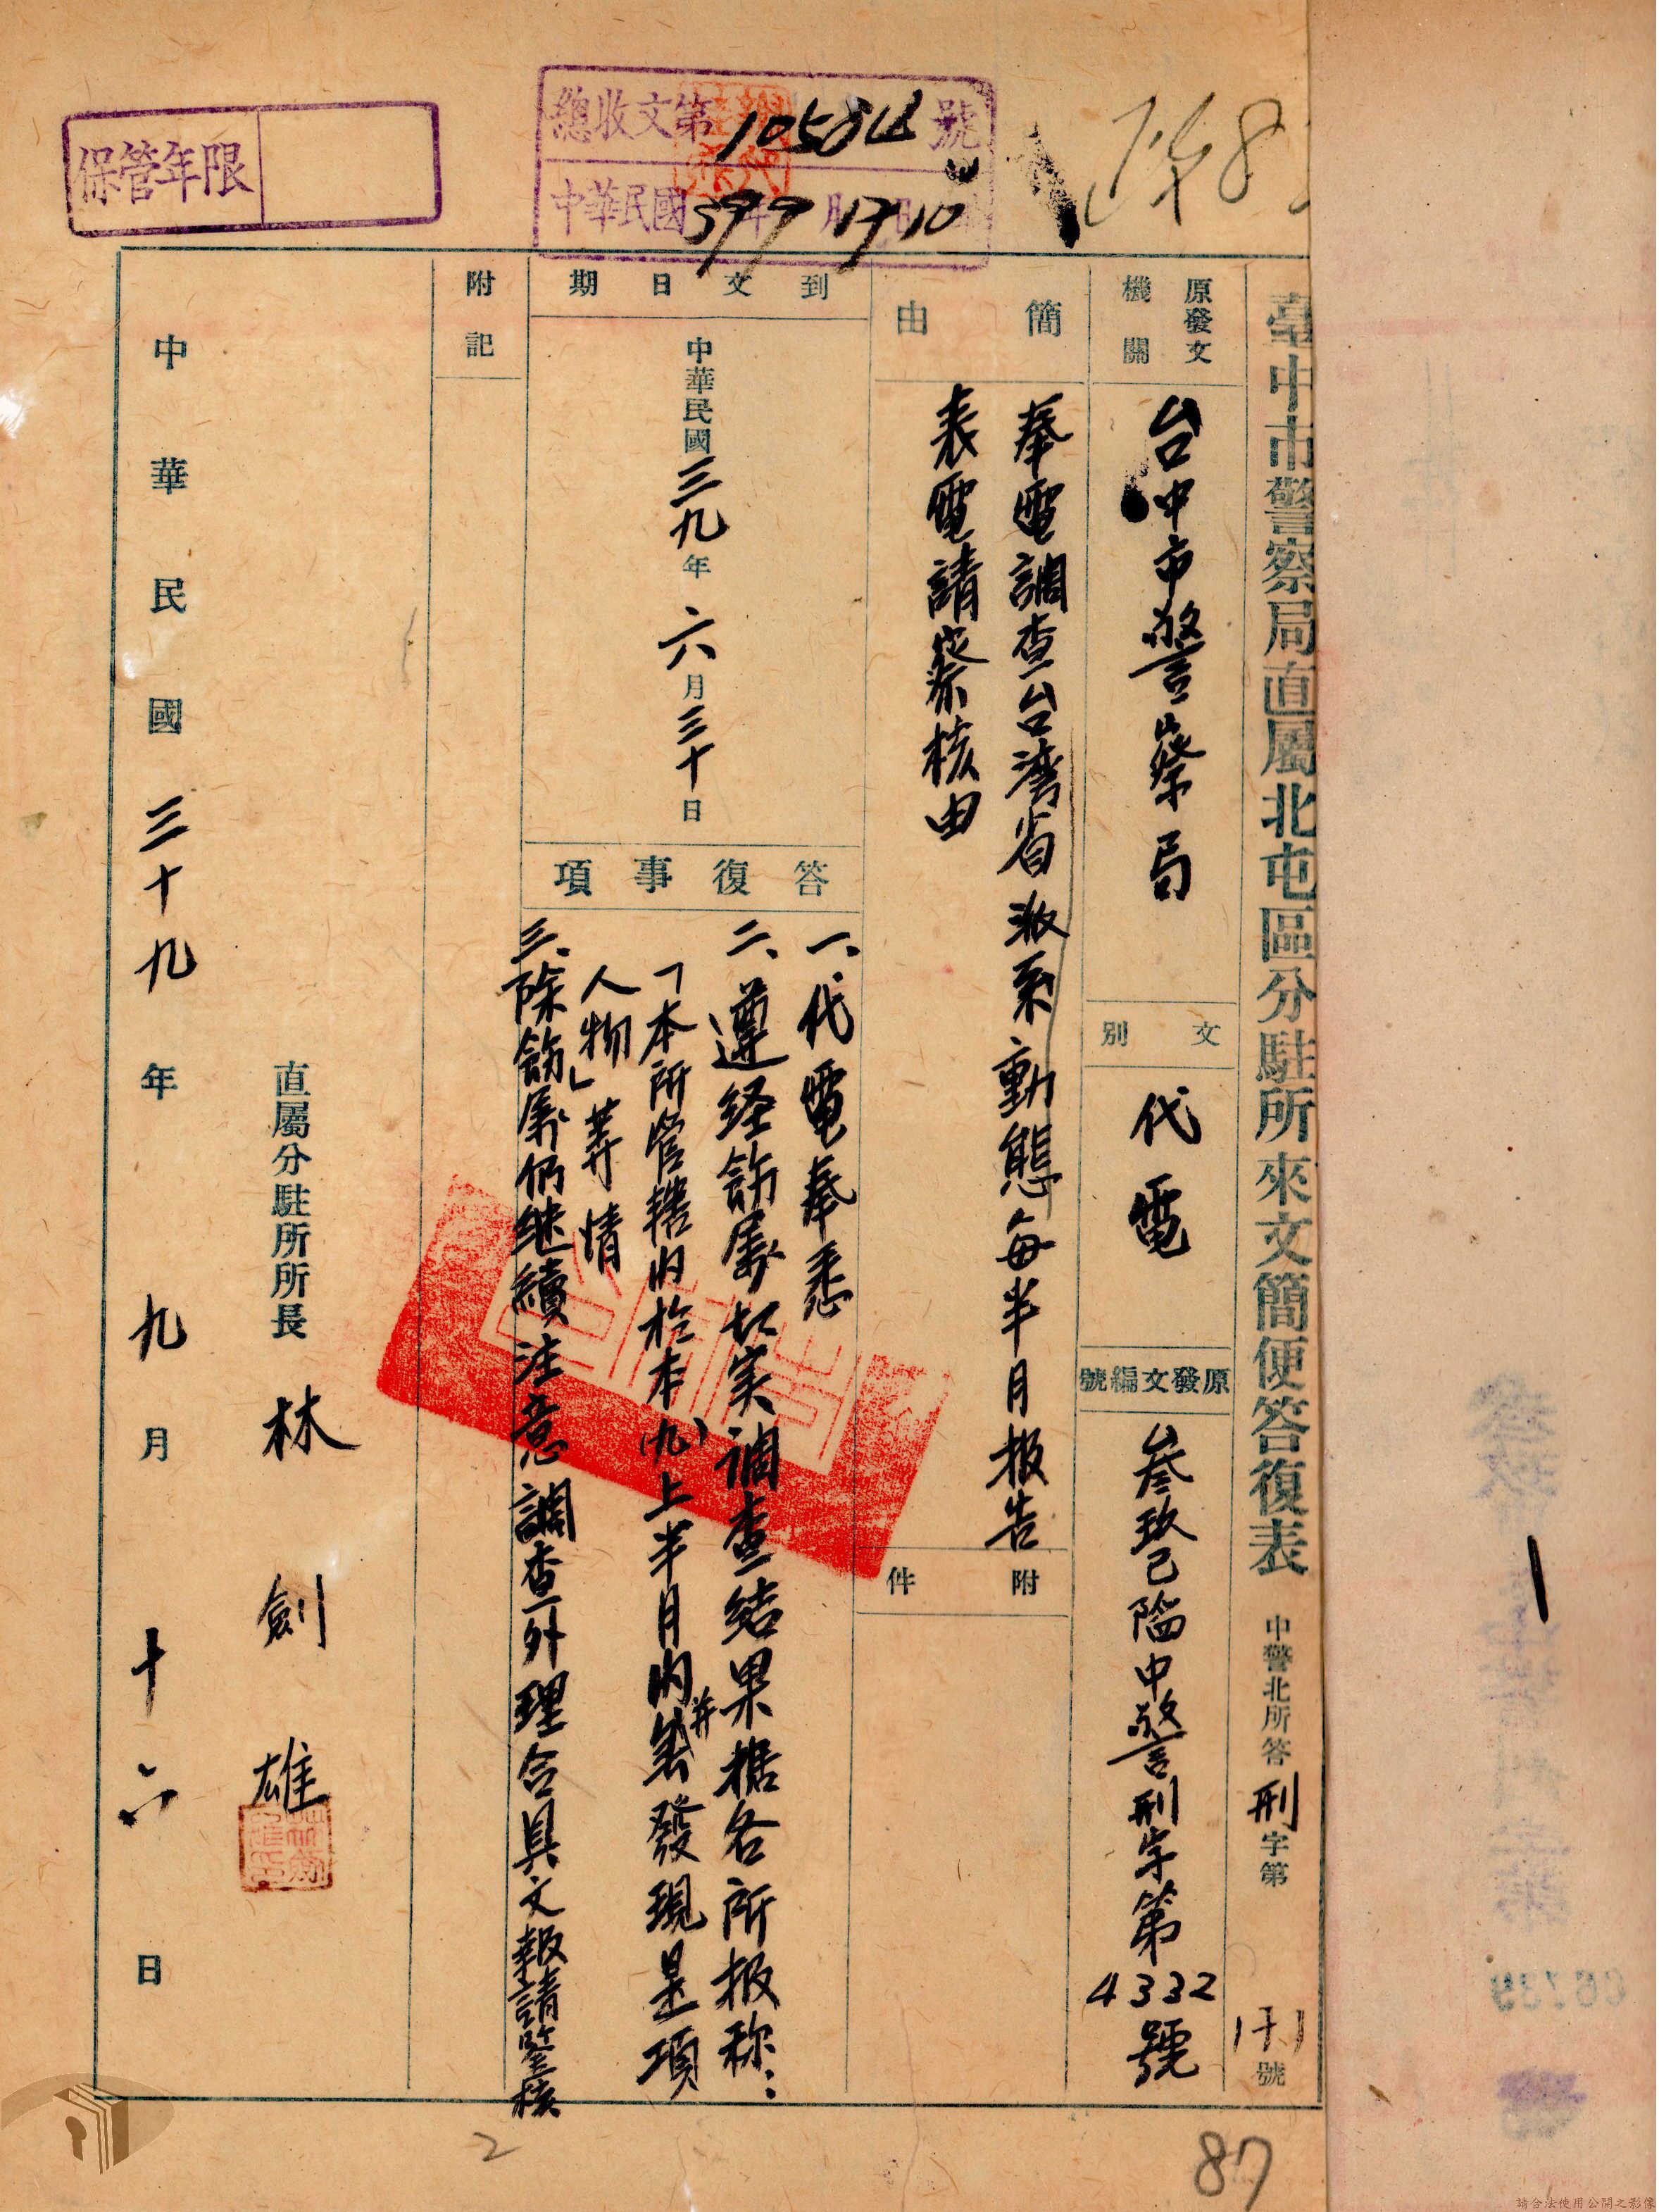 保管年限
總收文第10584號
中華民國39年9月17日10
臺中市警察局直屬北屯區分駐所來文簡便答復表
中警北所答刑字第 號
原發文機關
台中市警察局
文別
代電
原發文編號
叁玖已陷中警刑字第4332號
簡由
奉電調查台湾省派系動態每半月报告
表電請察核由
附件
到文日期
中華民國三九年六月三十日
答復事項
一、代電奉悉
二、遵经飭屬切实調查结果据各所报称:
「本所管辖內於本(九)上半月內並無發現是項
人物」等情
三、除飭屬仍继續注意調查外理合具文報請鉴核
附記
直屬分駐所所長 林劍雄
中華民國三十九年九月十六日
2
87
請合法使用公開之影像